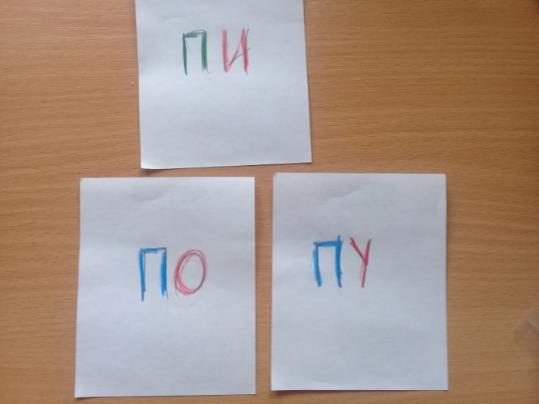 ПИ
ПО
ПУ